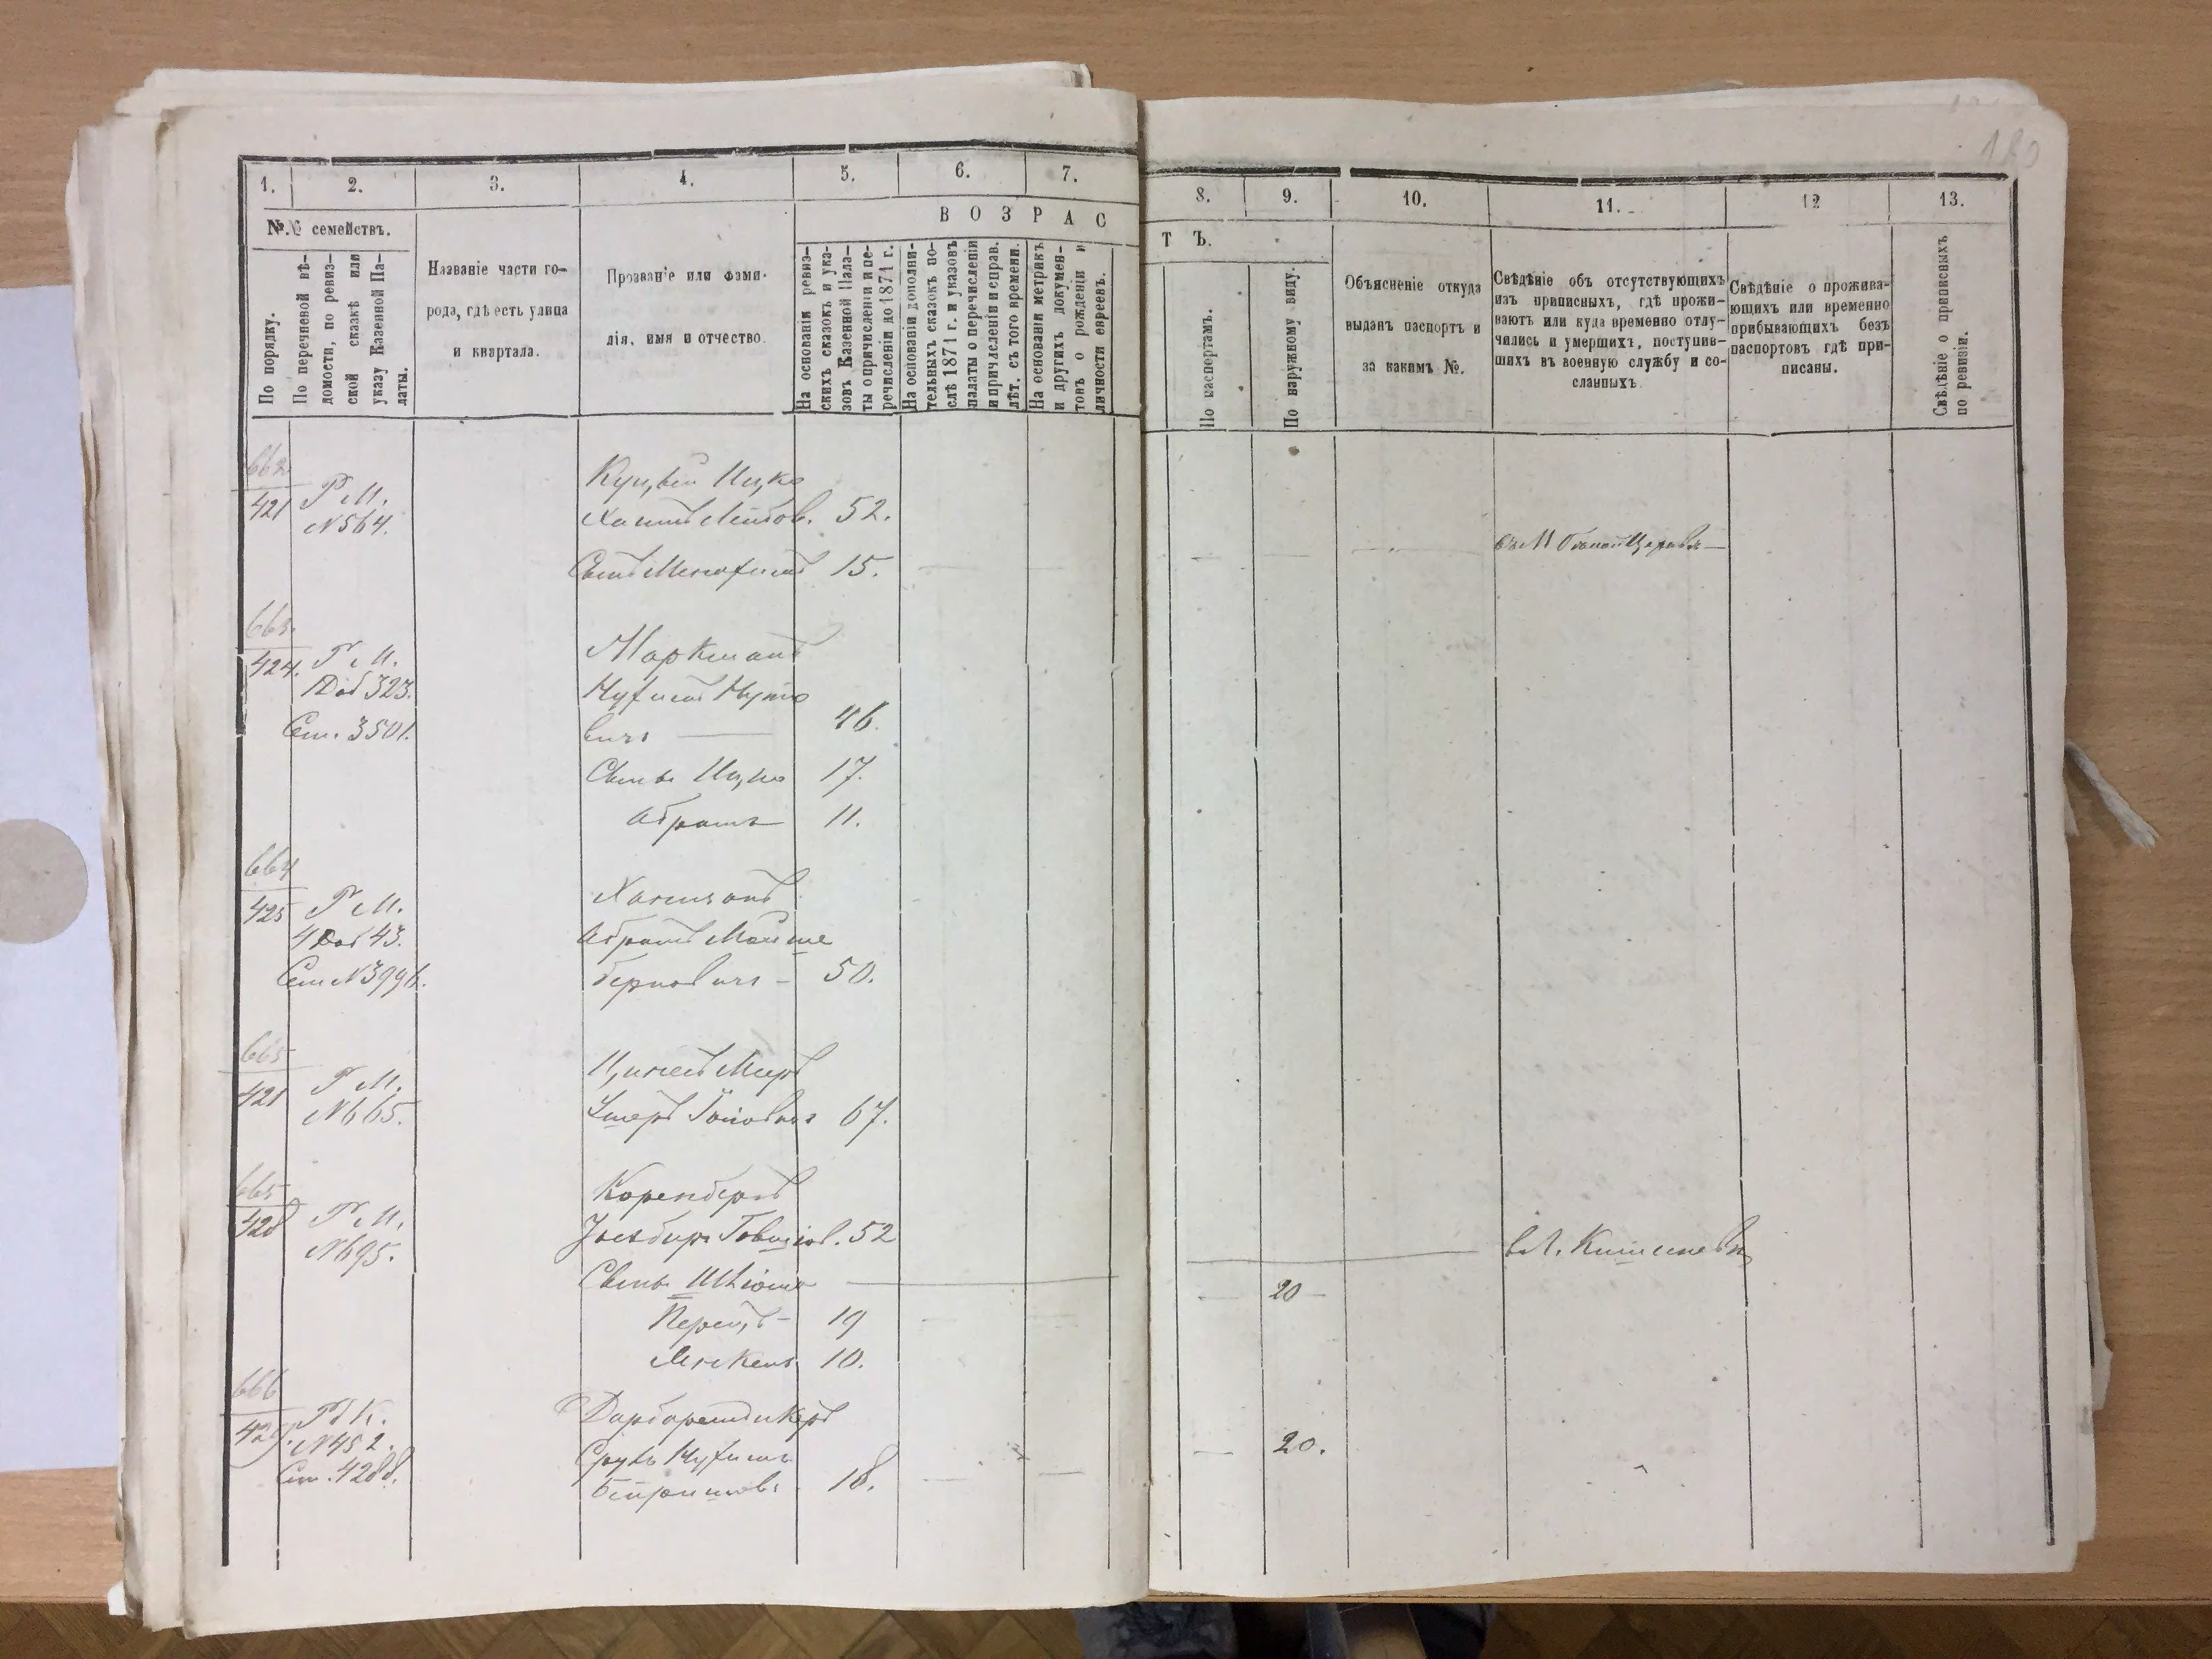 180
1.
2.
3.
4.
5.
6.
7.
8.
9.
10.
11.
12
13.
№.№ семействъ.
ВОЗРАС
ТЪ.
По порядку.
По перечневой вѣ-
домости, по ревиз-
ской сказкѣ или
указу Казенной Па-
латы.
Названіе части го-
рода, гдѣ есть улица
и квартала.
Прозваніе или фами-
лія, имя и отчество.
На основаніи ревиз-
скихъ сказокъ и ука-
зовъ Казенной Пала-
ты о причисленіи и пе-
речисленіи до 1871 г.
На основаніи дополни-
тельныхъ сказокъ по-
слѣ 1871 г. и указовъ
палаты о перечисленіи
и причисленіи и справ.
лѣт. съ того времени.
На основаніи метрикъ
и другихъ докумен-
товъ о рожденіи и
личности евреевъ.
По паспортамъ.
По наружному виду.
Объясненіе откуда
выданъ паспортъ и
за какимъ №.
Свѣдѣніе объ отсутствующихъ
изъ приписныхъ, гдѣ прожи-
ваютъ или куда временно отлу-
чились и умершихъ, поступив-
шихъ въ военную службу и со-
сланныхъ
Свѣдѣніе о прожива-
ющихъ или временно
прибывающихъ безъ
паспортовъ гдѣ при-
писаны.
Свѣдѣніе о приписныхъ
по ревизіи.
662
421
Р. М.
N 564.
Куцый Ицко
Хаимъ Лейбов. 52.
Сынъ 15.
въ М Бѣлой Церкви
663.
424.
Р. М.
Доб 323.
Сем. 3501.
Маркманъ
Нухимъ Нуто
вичъ 46.
Сынъ Ицко 17.
Абрамъ 11.
664
425
Р М.
4 Доб 43.
Сем N 3996.
Абрамъ Мойше
беровичъ - 50.
665
421
Р М.
N 665.
67.
665
428
Р. М.
N 695.
Коренбергъ
52
в Г. Кишиневѣ
Сынъ
20
Перецъ - 19
10.
666
429.
Р К.
N 452.
Сем. 4288.
Дарбаремдикеръ
Сруль Нухимъ
18.
20.